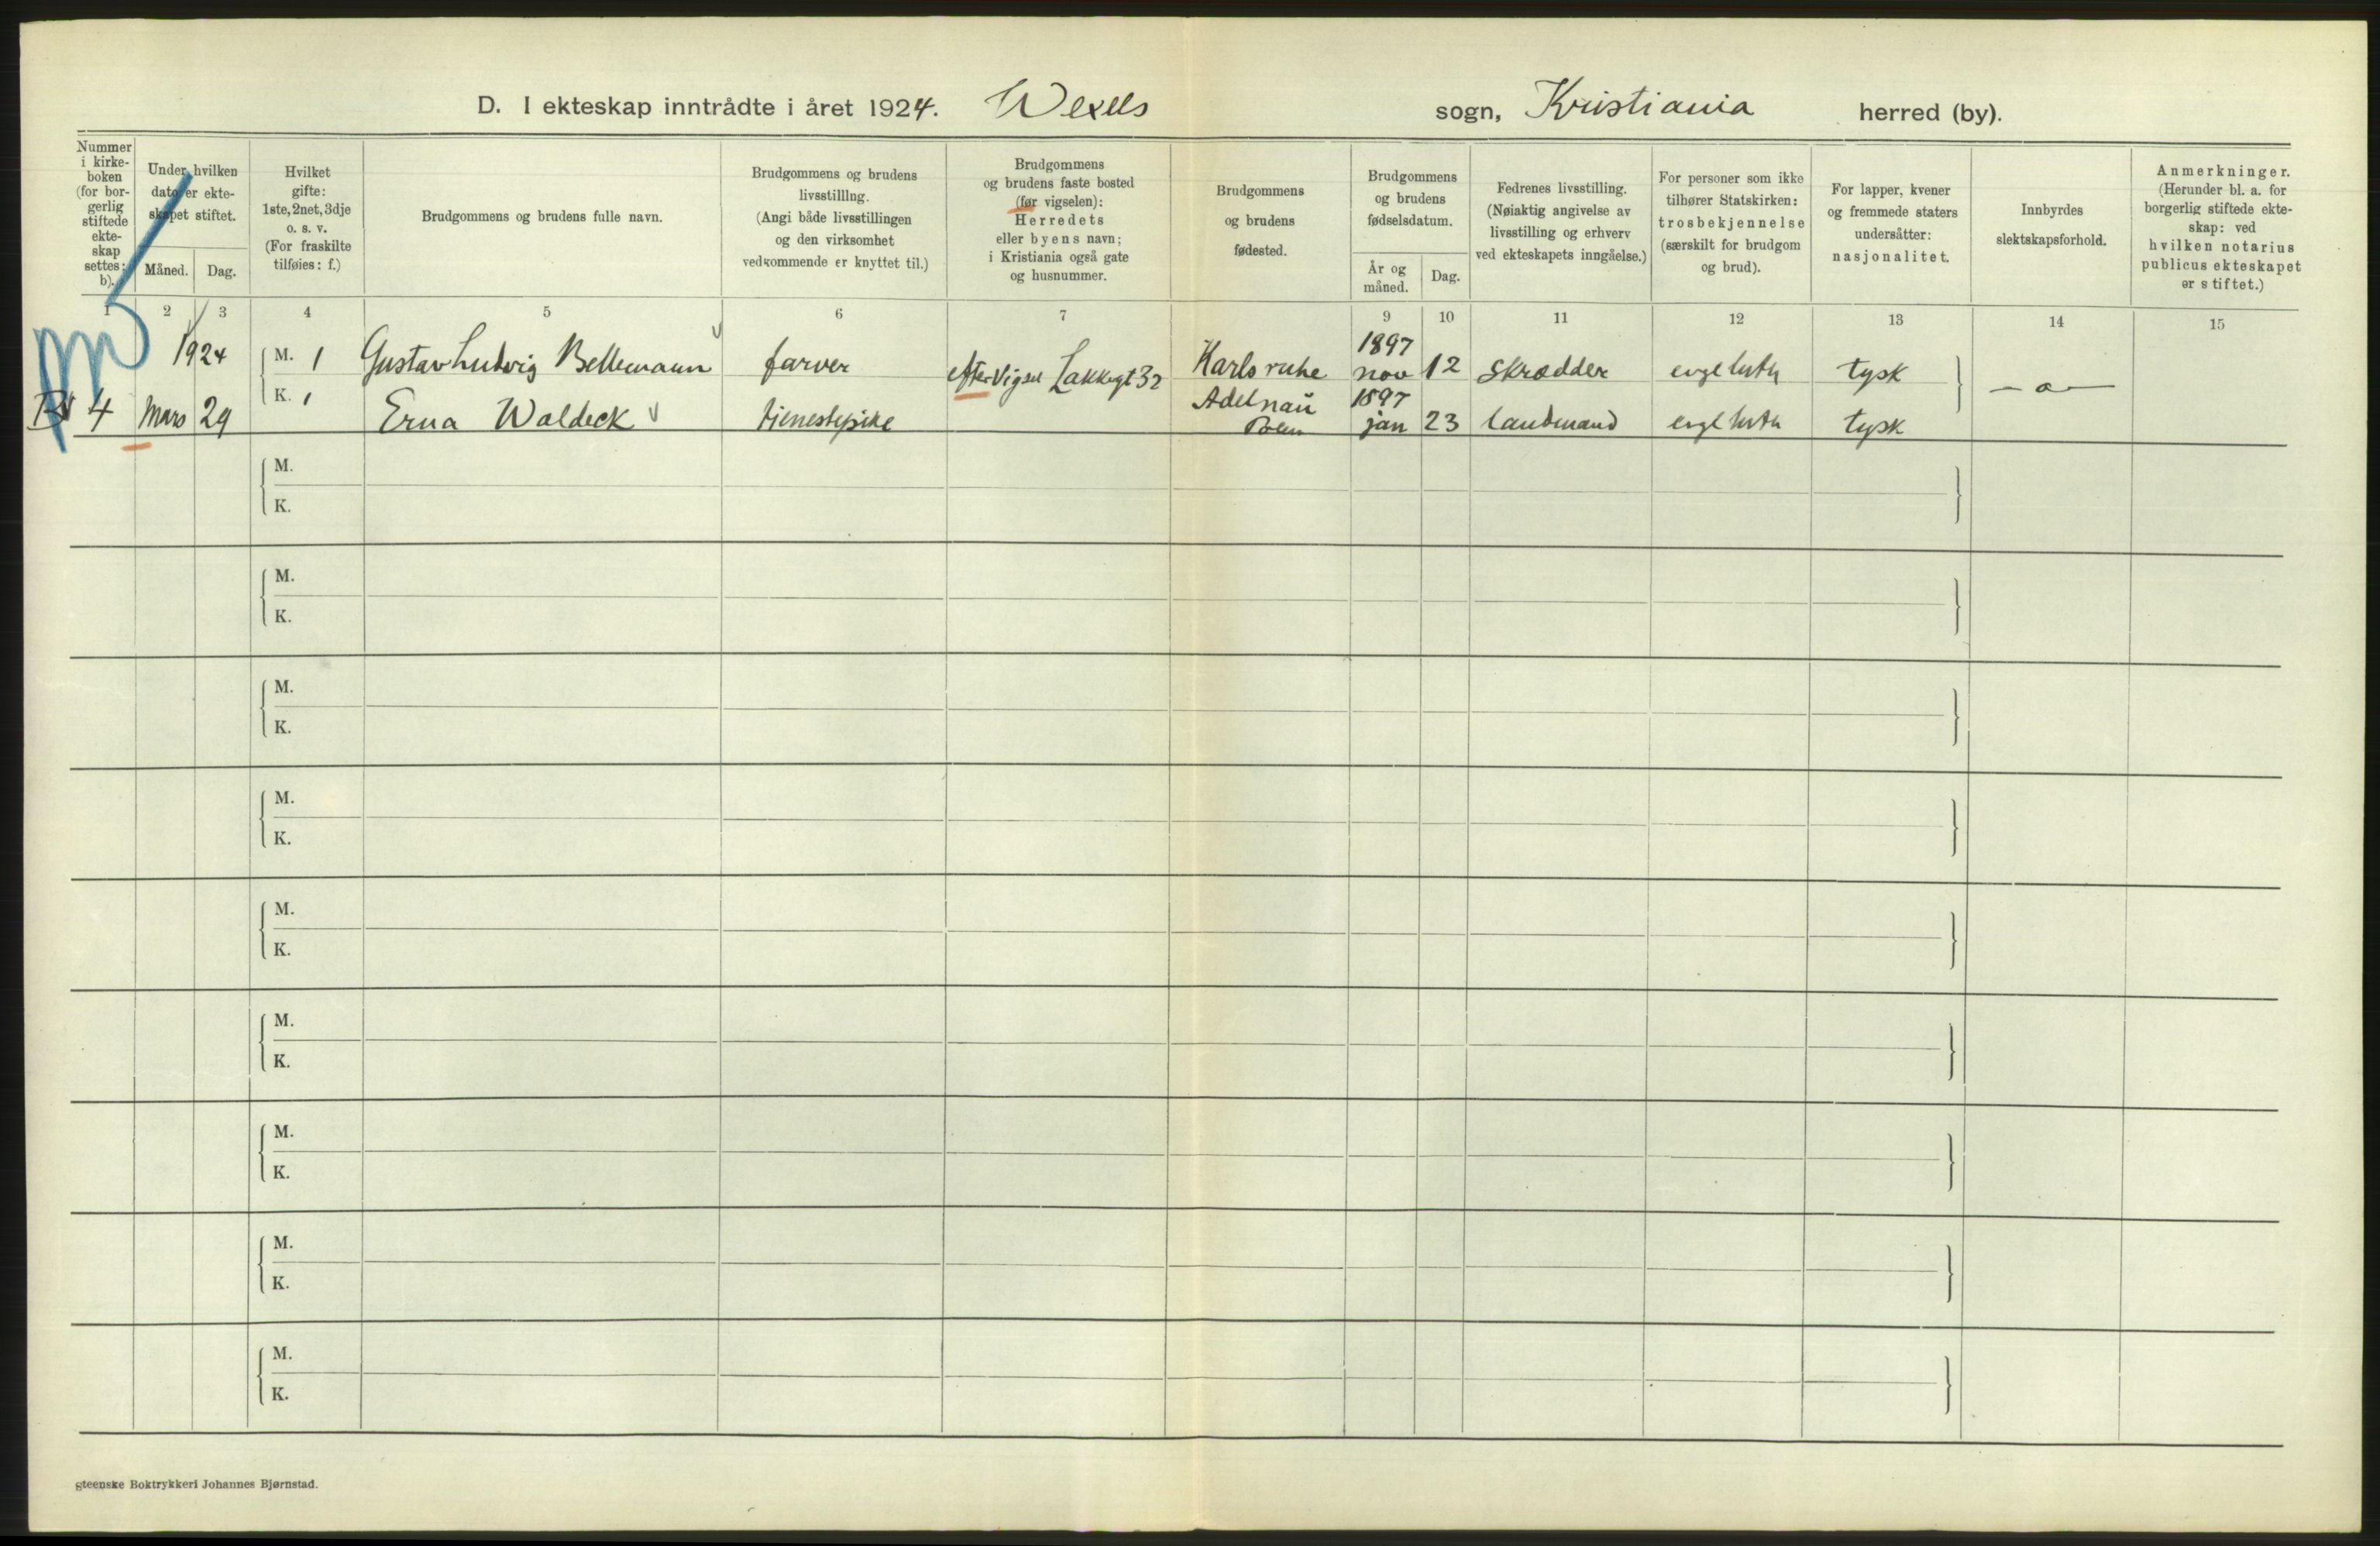 D. I ekteskap inntrådte i året 1924. Wexels sogn, Kristiania herred (by).
Nummer
i kirke-
boken
(for bor-
gerlig
stiftede
ekte-
skap
settes:
b).
Under hvilken
dato er ekte-
skapet stiftet.
Måned.
Dag.
Hvilket
gifte:
1ste, 2net, 3dje
o. s. v.
(For fraskilte
tilføies: f.)
Brudgommens og brudens fulle navn.
Brudgommens og brudens
livsstilllng.
(Angi både livsstillingen
og den virksomhet
vedkommende er knyttet til.)
Brudgommens
og brudens faste bosted
(før vigselen):
Herredets
eller byens navn;
i Kristiania også gate
og husnummer.
Brudgommens
og brudens
fødested.
Brudgommens
og brudens
fødselsdatum.
År og
måned.
Dag.
Fedrenes livsstilling.
(Nøiaktig angivelse av
livsstilling og erhverv
ved ekteskapets inngåelse.)
For personer som ikke
tilhører Statskirken:
trosbekjennelse
(særskilt for brudgom
og brud).
For lapper, kvener
og fremmede staters
undersåtter:
nasjonalitet.
Innbyrdes
slektskapsforhold.
Anmerkninger.
(Herunder bl. a. for
borgerlig stiftede ekte-
skap: ved
hvilken notarius
publicus ekteskapet
er stiftet.)
1 2 3 4 5 6 7 9 10 11 12 13 14 15
1924 M. 1 Gustav Ludvig Bellemann farver efter vigsel Lakkegt 32 Karlsruhe 1897 nov 12 skrædder evgl luth tysk — o —
4 Mars 29 K. 1 Erna Waldeck tjenestepike Adelnaŭ Polen 1897 jan 23 landmand evgl luth tysk
M.
K.
M.
K.
M.
K.
M.
K.
M.
K.
M.
K.
M.
K.
M.
K.
M.
K.
gteenske Boktrykkeri Johannes Bjørnstad.